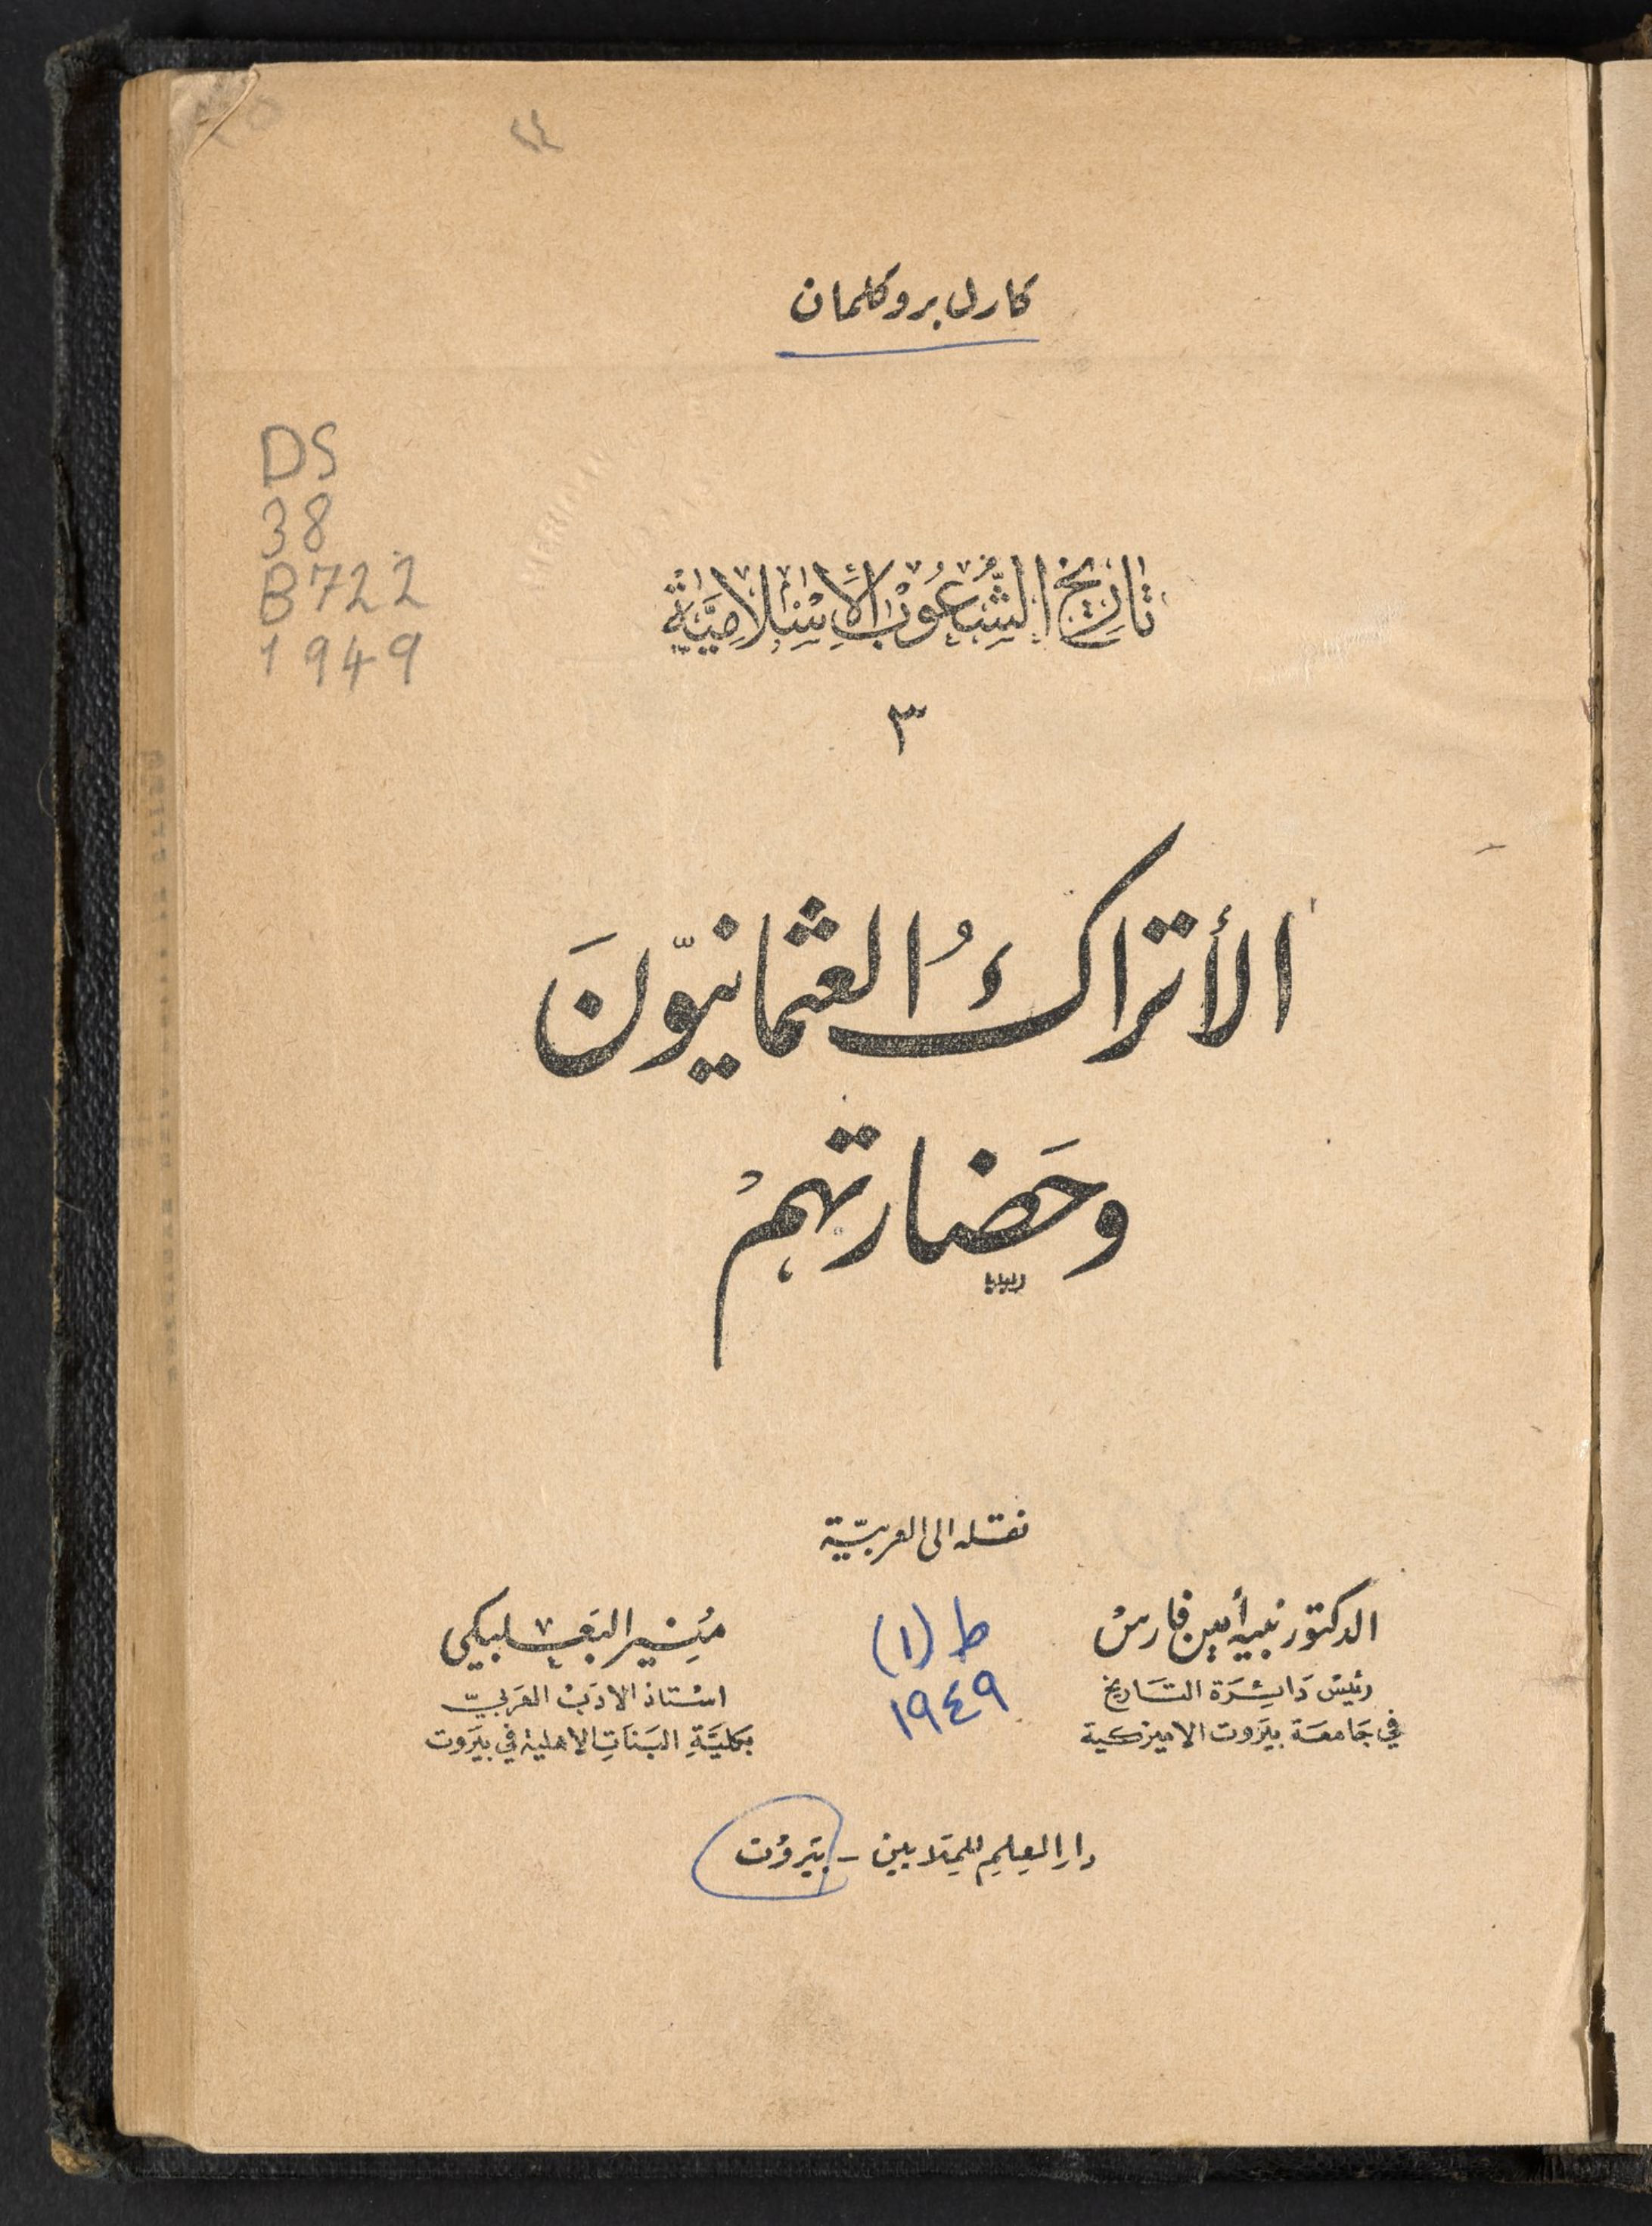 كارل بروكلمان
DS
38
B722
1949
تَاريخ الشُّعُوبُ الإِسْلَامِيَّةْ
٣
الأتراكُ العثمانيّونَ
وحَضارتهمْ
نقله الى العربيّة
الدكتور نبيه أمين فارسْ
رئيسْ دَائِرَة التَاريخ
في جَامعَة بيَروت الاميركية
ط (١)
١٩٤٩
مُنير البَعلبكي
اسْتاذ الادَبْ العَربيّ
بكليَّةِ البَنَاتِ الاهلية في بيَروت
دار العِلم للمِلايين - بيَروُت